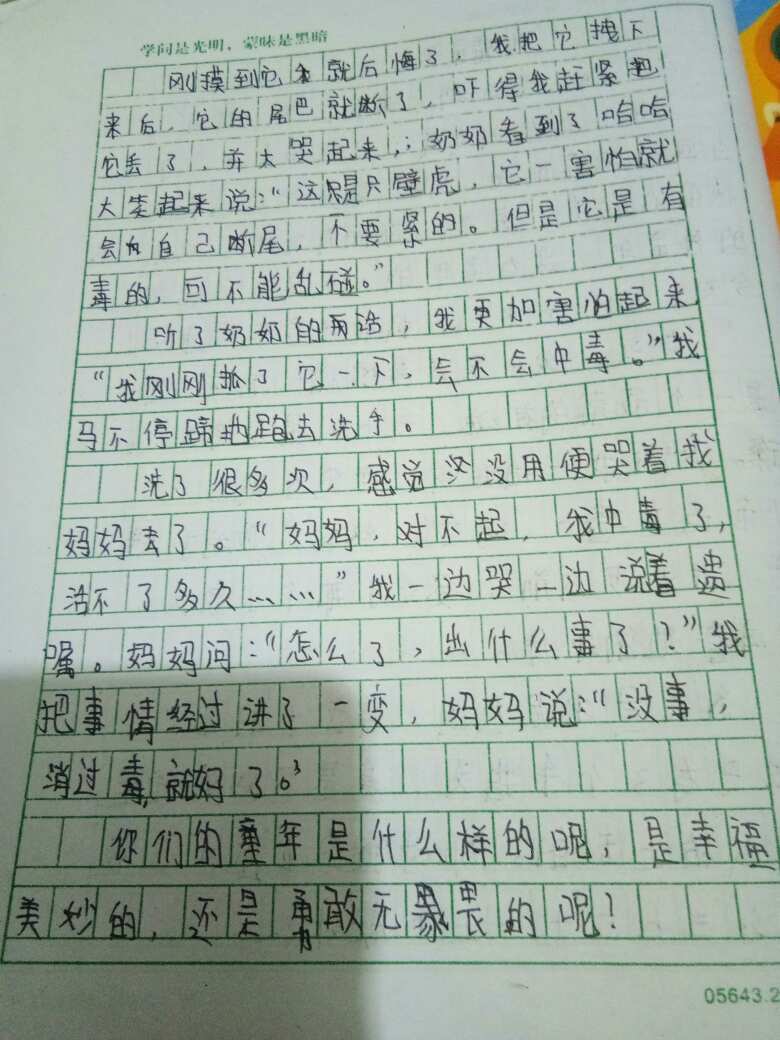 学问是光明，蒙昧是黑暗
刚摸到它就后悔了，我把它拽下
来后，它的尾巴就断了，吓得我赶紧把
它丢了，并大哭起来，奶奶看到了哈哈
大笑起来说：“这只是只壁虎，它一害怕就
会自己断尾，不要紧的。但是它是有
毒的，可不能乱碰。”
听了奶奶的话，我更加害怕起来
“我刚刚抓了它一下，会不会中毒。”我
马不停蹄地跑去洗手。
洗了很多次，感觉没用便哭着找
妈妈去了。“妈妈，对不起，我中毒了，
活不了多久……”我一边哭一边说着遗
嘱。妈妈问：“怎么了，出什么事了？”我
把事情经过讲了一变，妈妈说：“没事，
消过毒就好了。”
你们的童年是什么样的呢，是幸福
美妙的，还是勇敢无畏的呢！
05643.2